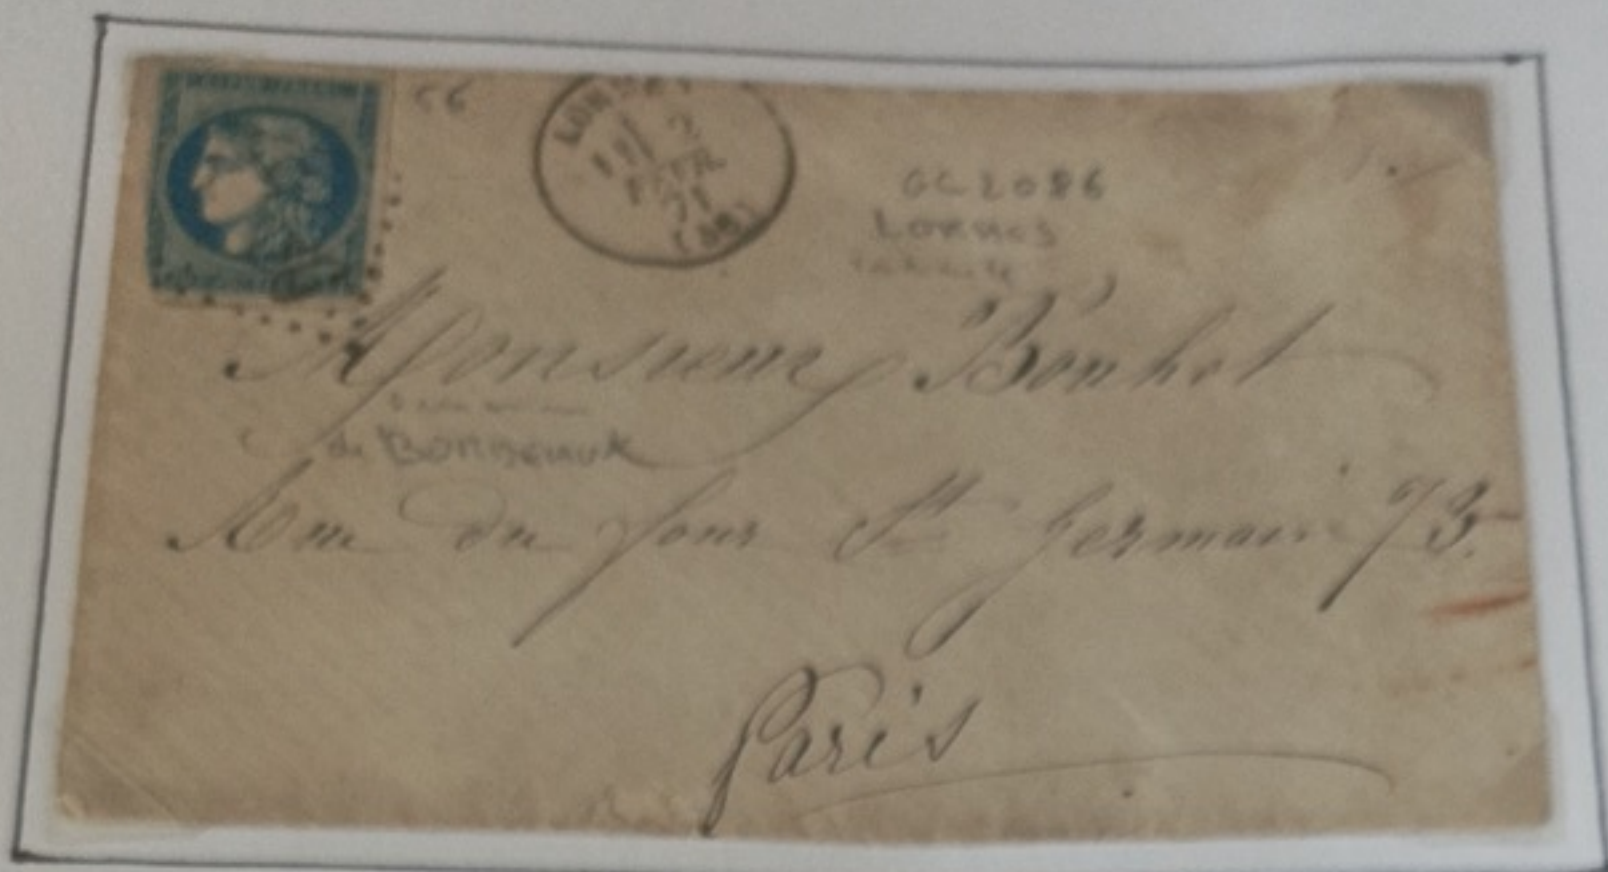 56
2
FEVR
71
GC 2086
LORMES
Monsieur Bonhot
de BORDEAUX
Rue du four St Germain 73.
Paris